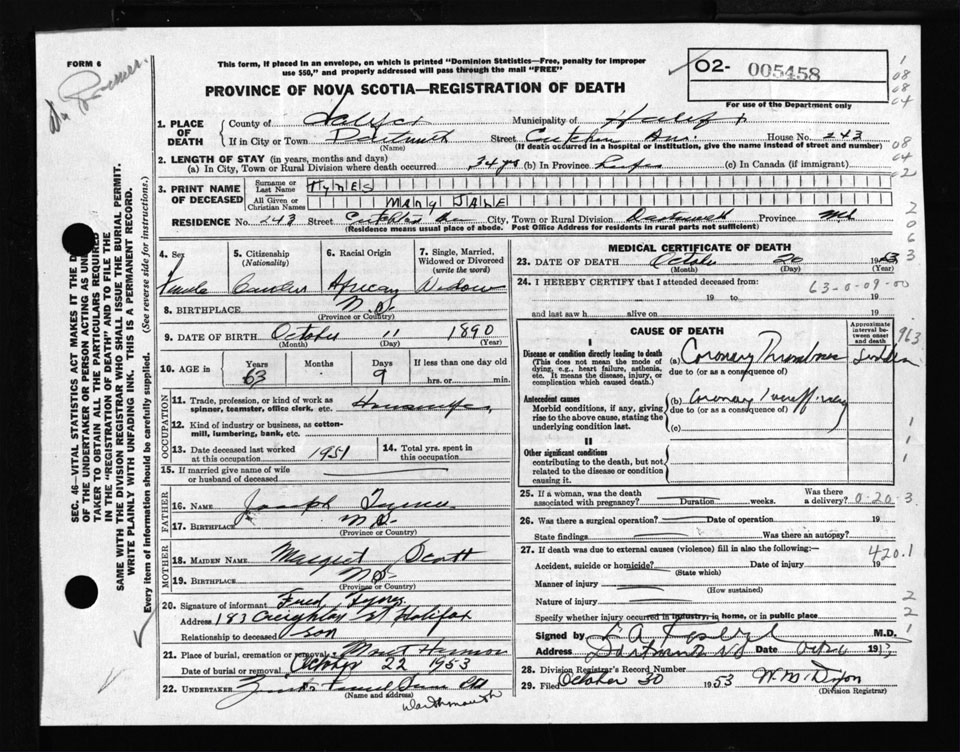 FORM 6
This form, if placed in an envelope, on which is printed "Dominion Statistics—Free, penalty for improper
use $50," and properly addressed will pass through the mail "FREE"
PROVINCE OF NOVA SCOTIA—REGISTRATION OF DEATH
02- 005458
For use of the Department only.
1. PLACE OF DEATH
County of Halifax Municipality of Halifax
If in City or Town Dartmouth Street House No. 243
(Name) (If death occurred in a hospital or institution, give the name instead of street and number)
2. LENGTH OF STAY (in years, months and days)
(a) In City, Town or Rural Division where death occurred 34 yrs (b) In Province Life (c) In Canada (if immigrant)
3. PRINT NAME OF DECEASED
Surname or Last Name TYNES
All Given or Christian Names MARY JANE
RESIDENCE No. 243 Street City, Town or Rural Division Dartmouth Province
(Residence means usual place of abode. Post Office Address for residents in rural parts not sufficient)
4. Sex Female
5. Citizenship (Nationality) Canadian
6. Racial Origin African
7. Single, Married, Widowed or Divorced (write the word) Widow
8. BIRTHPLACE N.S.
(Province or Country)
9. DATE OF BIRTH October 11 1890
(Month) (Day) (Year)
10. AGE in Years 63 Months Days 9 If less than one day old
hrs. or min.
OCCUPATION
11. Trade, profession, or kind of work as spinner, teamster, office clerk, etc. Housewife
12. Kind of industry or business, as cotton-mill, lumbering, bank, etc.
13. Date deceased last worked at this occupation 1951
14. Total yrs. spent in this occupation
15. If married give name of wife or husband of deceased
FATHER
16. NAME Joseph Tynes
17. BIRTHPLACE N.S.
(Province or Country)
MOTHER
18. MAIDEN NAME Margret Scott
19. BIRTHPLACE N.S.
(Province or Country)
20. Signature of informant Fred Tynes
Address 183 Creighton St Halifax
Relationship to deceased son
21. Place of burial, cremation or removal Mount Hermon
Date of burial or removal October 22 1953
22. UNDERTAKER
(Name and address)
Dartmouth
MEDICAL CERTIFICATE OF DEATH
23. DATE OF DEATH October 20 1953
(Month) (Day) (Year)
24. I HEREBY CERTIFY that I attended deceased from:
63-0-09-00
19 to 19
and last saw h alive on 19
CAUSE OF DEATH
Approximate interval between onset and death
I
Disease or condition directly leading to death
(This does not mean the mode of dying, e.g., heart failure, asthenia, etc. It means the disease, injury, or complication which caused death.)
(a) Coronary Thrombosis Sudden
due to (or as a consequence of)
Antecedent causes
Morbid conditions, if any, giving rise to the above cause, stating the underlying condition last.
(b) Coronary Insufficiency
due to (or as a consequence of)
(c)
II
Other significant conditions
contributing to the death, but not related to the disease or condition causing it.
25. If a woman, was the death associated with pregnancy? Duration weeks. Was there a delivery? 0-20-3
26. Was there a surgical operation? Date of operation 19
State findings Was there an autopsy?
27. If death was due to external causes (violence) fill in also the following:— 420.1
Accident, suicide or homicide? Date of injury 19
(State which)
Manner of injury
(How sustained)
Nature of injury
Specify whether injury occurred in industry, in home, or in public place
Signed by M.D.
Address Dartmouth NS Date 1953
28. Division Registrar's Record Number
29. Filed October 30 1953 W. M. Dyson
(Division Registrar)
SEC. 46—VITAL STATISTICS ACT MAKES IT THE DUTY
OF THE UNDERTAKER OR PERSON ACTING AS UNDER
TAKER TO OBTAIN ALL THE PARTICULARS REQUIRED
IN THE "REGISTRATION OF DEATH" AND TO FILE THE
SAME WITH THE DIVISION REGISTRAR WHO SHALL ISSUE THE BURIAL PERMIT.
WRITE PLAINLY WITH UNFADING INK. THIS IS A PERMANENT RECORD.
Every item of information should be carefully supplied. (See reverse side for instructions.)